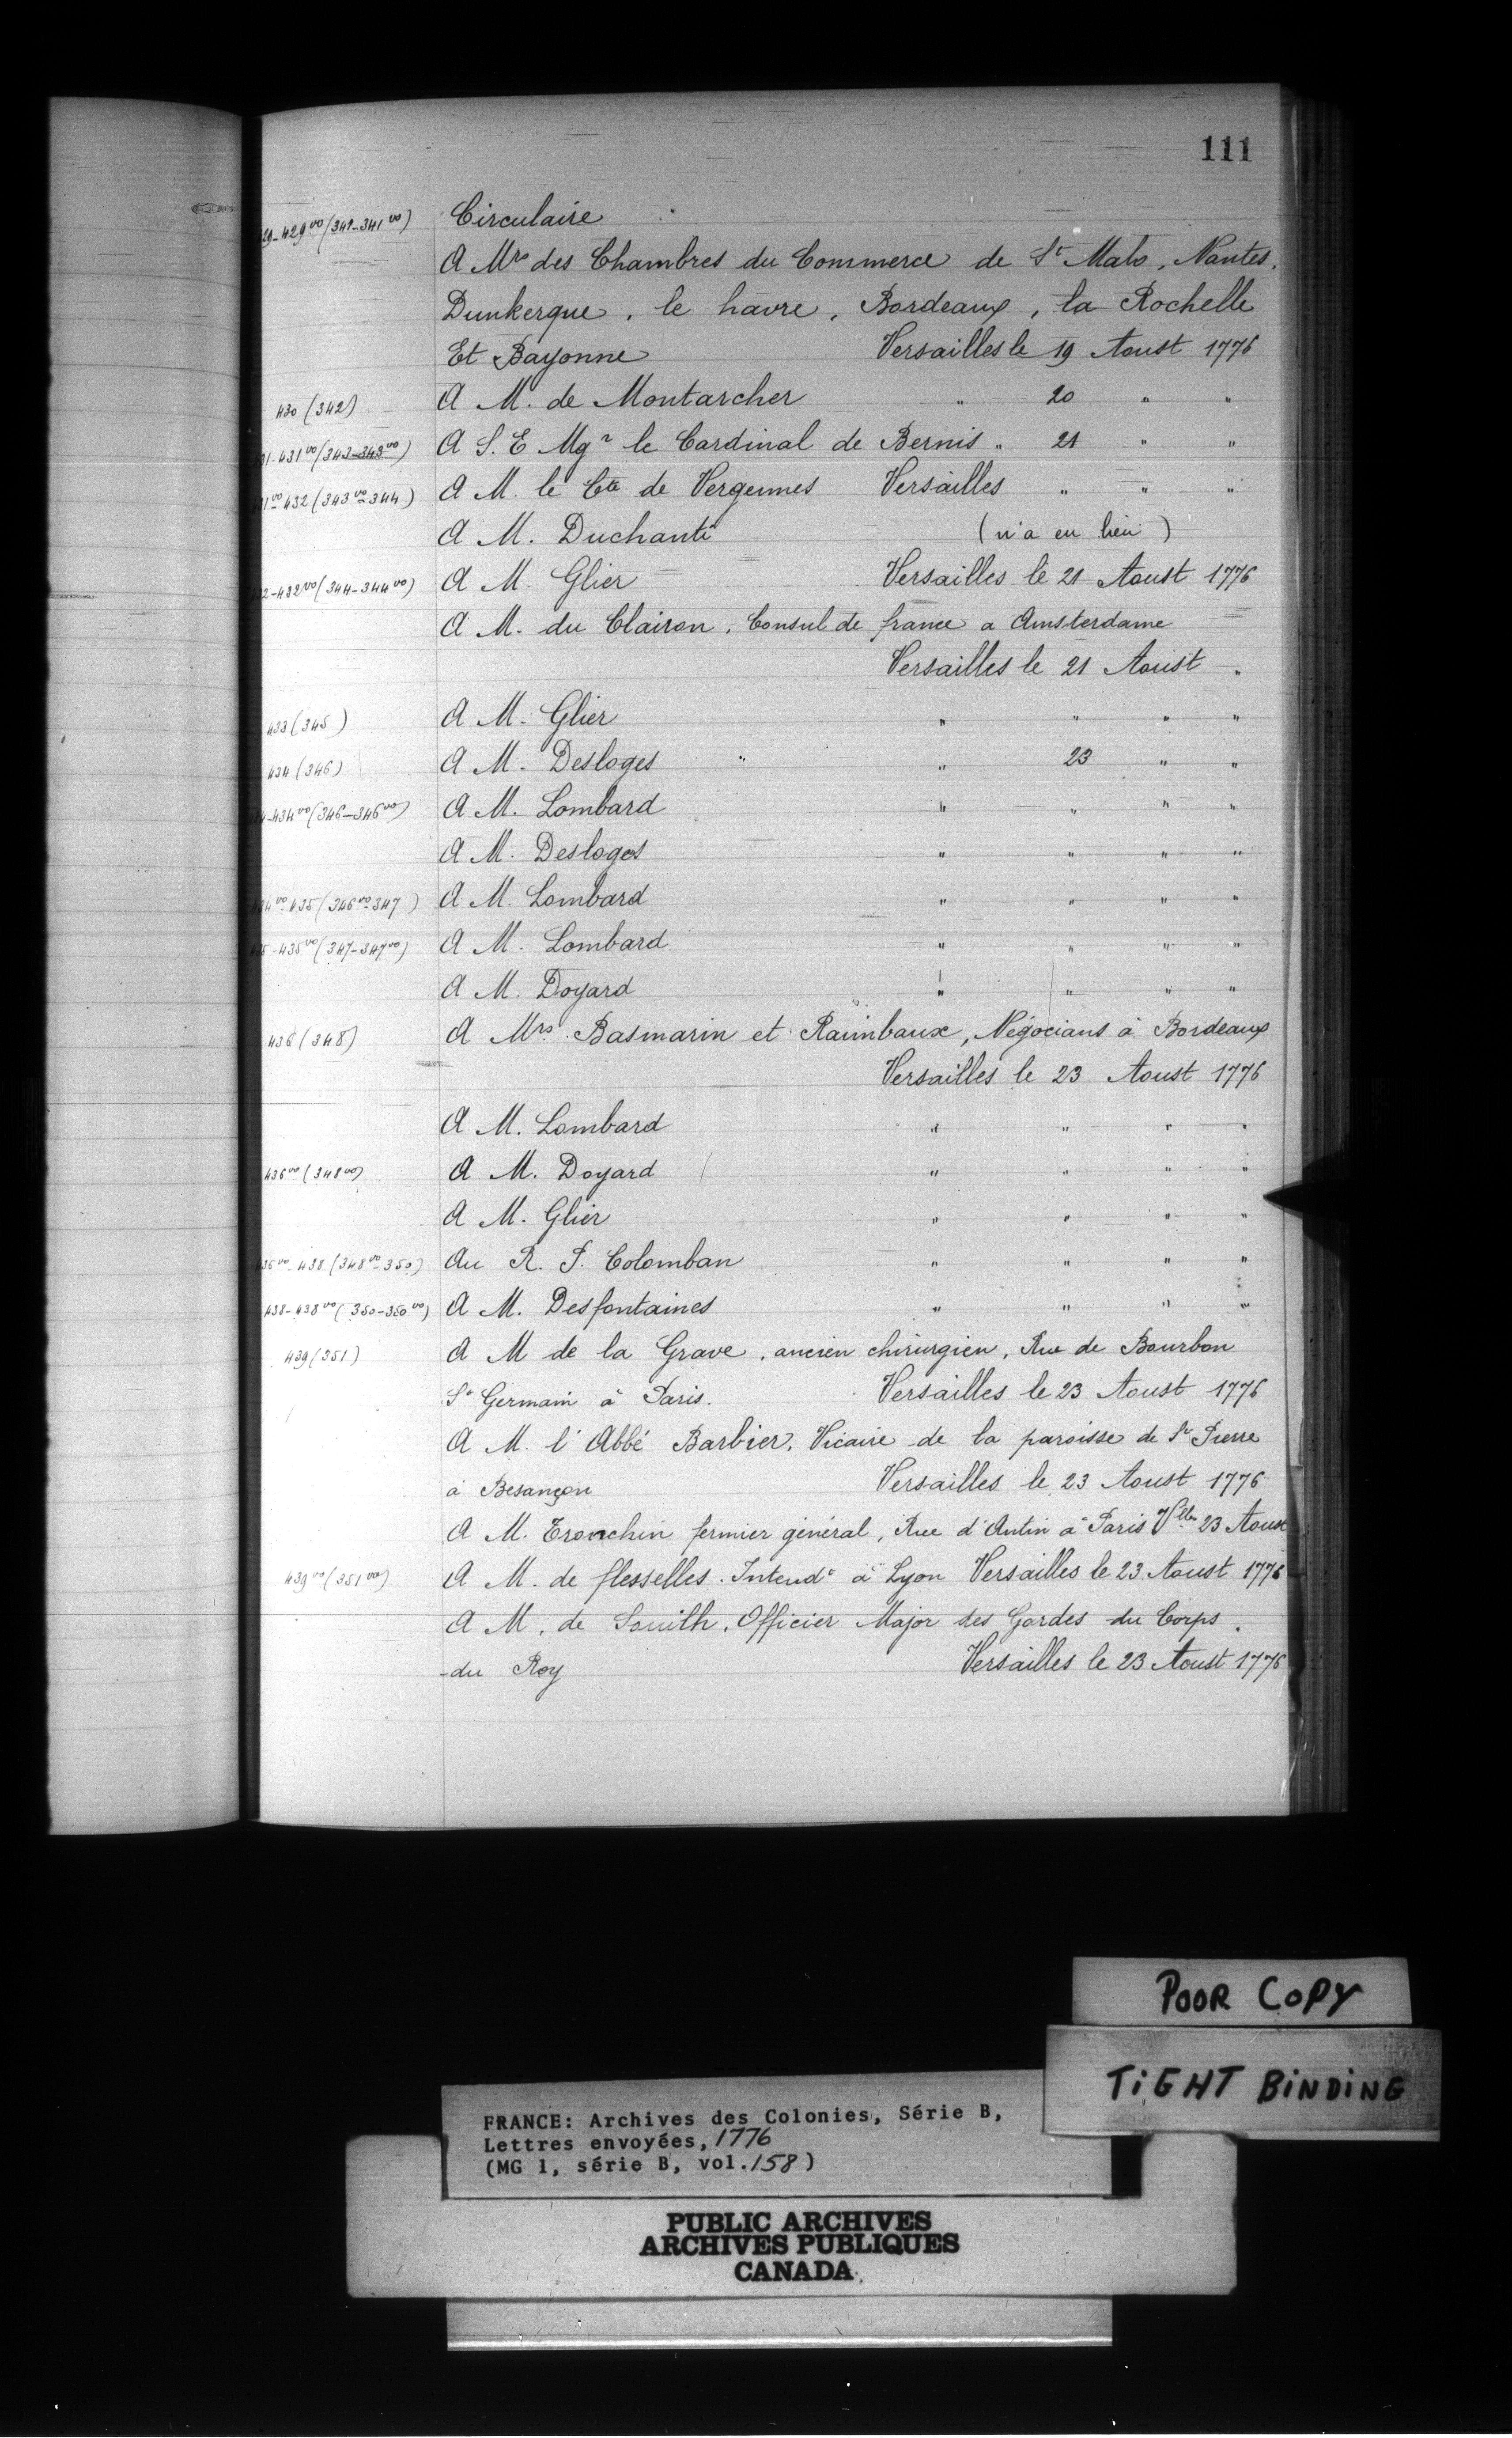 111
29-429vo (341-341vo) Circulaire
A Mrs des Chambres du Commerce de St Malo, Nantes,
Dunkerque, le havre, Bordeaux, la Rochelle
Et Bayonne Versailles le 19 Aoust 1776
430 (342) A M. de Montarcher " 20 " "
31-431vo (343-343vo) A S. E Mgr le Cardinal de Bernis " 21 " "
31vo-432 (343vo-344) A M. le Cte de Vergennes Versailles " " "
A M. Duchanti (n'a eu lieu)
32-432vo (344-344vo) A M. Glier Versailles le 21 Aoust 1776
A M. du Clairon, Consul de france a Amsterdame
Versailles le 21 Aoust "
433 (345) A M. Glier " " " "
434 (346) A M. Desloges " " 23 " "
34-434vo (346-346vo) A M. Lombard " " " "
A M. Desloges " " " "
434vo-435 (346vo-347) A M. Lombard " " " "
435-435vo (347-347vo) A M. Lombard " " " "
A M. Doyard " " " "
436 (348) A Mrs Basmarin et Raimbaux, Négocians à Bordeaux
Versailles le 23 Aoust 1776
A M. Lombard " " " "
436vo (348vo) A M. Doyard " " " "
A M. Glier " " " "
436vo-438 (348vo-350) Au R. P. Colomban " " " "
438-438vo (350-350vo) A M. Desfontaines " " " "
439 (351) A M de la Grave, ancien chirurgien, Rue de Bourbon
St Germain à Paris. Versailles le 23 Aoust 1776
A M. l'Abbé Barbier, Vicaire de la paroisse de St Pierre
à Besançon Versailles le 23 Aoust 1776
A M. Tronchin fermier général, Rue d'Antin à Paris Vlles 23 Aoust
439vo (351vo) A M. de flesselles. Intendt à Lyon Versailles le 23 Aoust 1776
A M. de Souilh, Officier Major des Gardes du Corps
du Roy Versailles le 23 Aoust 1776
POOR COPY
TIGHT BINDING
FRANCE: Archives des Colonies, Série B,
Lettres envoyées, 1776
(MG 1, série B, vol. 158)
PUBLIC ARCHIVES
ARCHIVES PUBLIQUES
CANADA